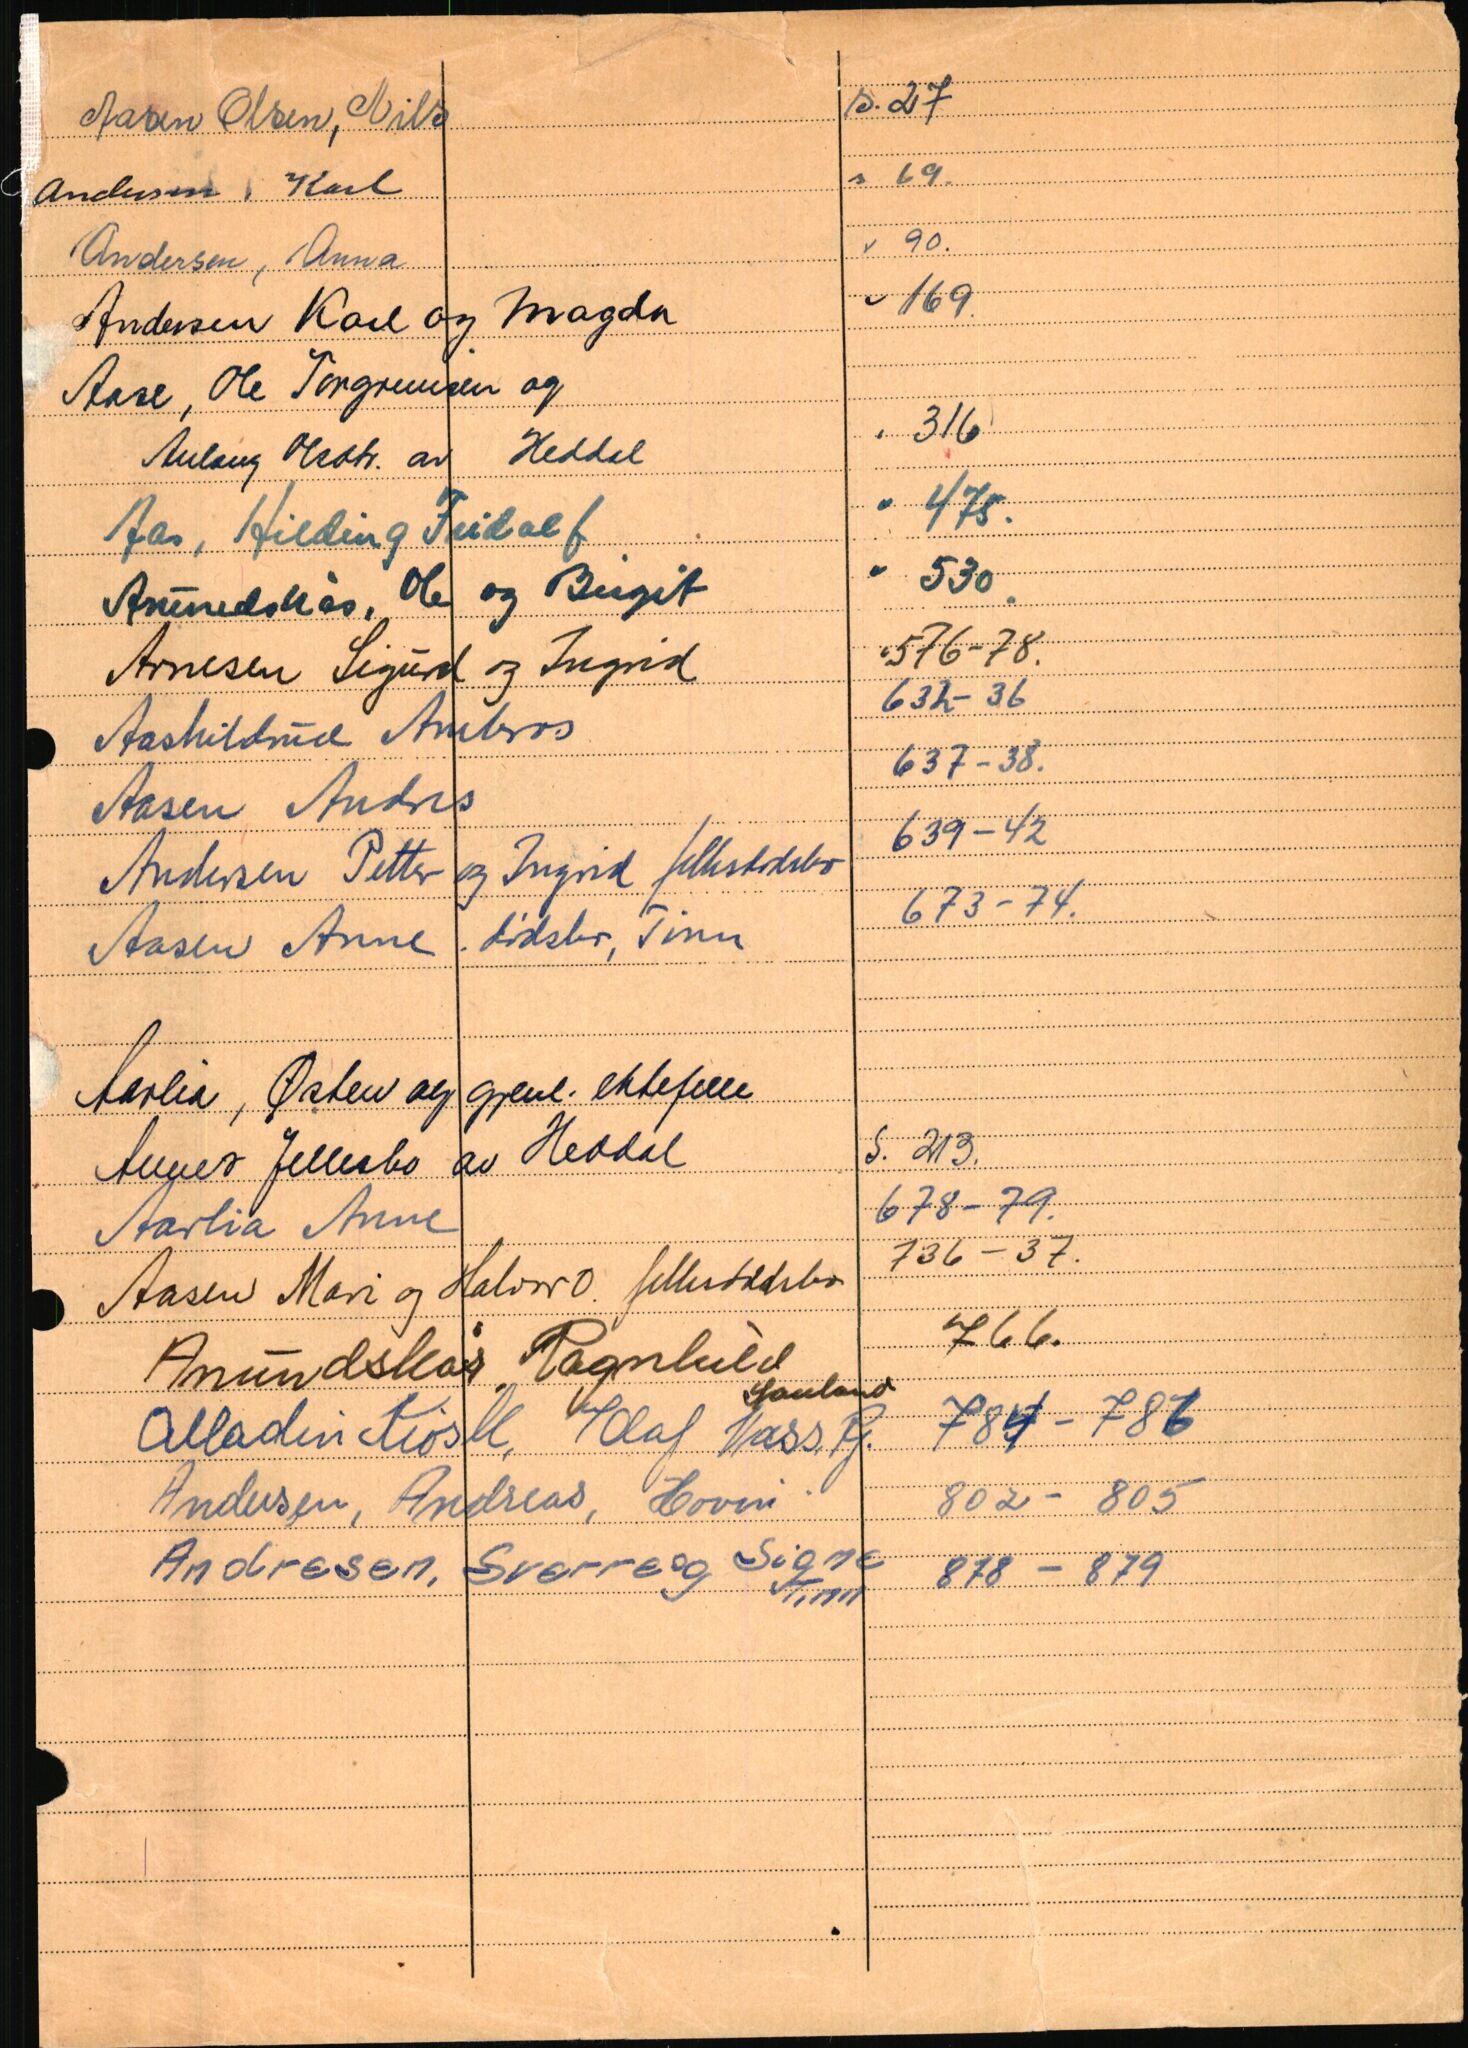 Aasen Olsen, Nils s. 27
Andersen, Karl s 69.
Andersen, Anna " 90.
Andersen Karl og Magda " 169.
Aase, Ole Torgrimsen og
Aulaug Olsdtr. av Heddal " 316
Aas, Hilding Fridolf " 475.
Anundskås, Ole og Birgit " 530.
Arnesen Sigurd og Ingrid " 576-78.
Aashildrud Ambros 632-36
Aasen Andres 637-38.
Andersen Petter og Ingrid fellesdødsbo 639-42
Aasen Anne. dødsbo, Tinn 673-74.
Aarlia, Østen og gjenl. ektefelle
Annes fellesbo av Heddal S. 213.
Aarlia Anne 678-79.
Aasen Mari og Halvor O. fellesdødsbo 736-37.
Anundskås, Ragnhild 766.
Alladin Kiosk, Olaf Aass, Rj. Sauland 784-786
Andersen, Andreas, Hovin 802-805
Andresen, Sverre og Signe 878-879
Tinn